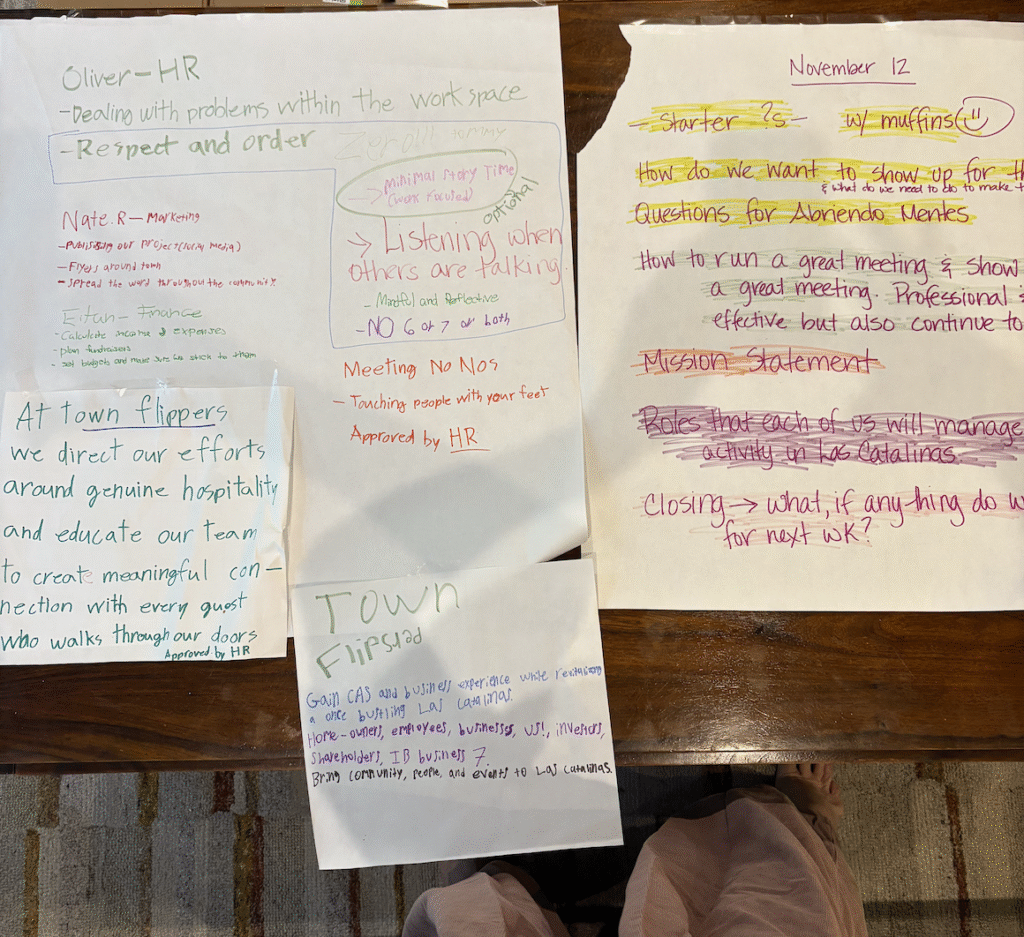 Oliver - HR
- Dealing with problems within the work space
- Respect and order
Zero!!! tommy
-> Minimal story Time
(work focused)
optional
-> Listening when
others are talking.
- Mindful and Reflective
- NO 6 or 7 or both
Nate.R - Marketing
- Publishing our project (social media)
- Flyers around town
- spread the word throughout the community
Eitan - Finance
- Calculate income & expenses
- plan fundraisers
- set budgets and make sure we stick to them
Meeting No Nos
- Touching people with your feet
Approved by HR
At town flippers
we direct our efforts
around genuine hospitality
and educate our team
to create meaningful con-
nection with every guest
who walks through our doors
Approved by HR
TOWN
Flipsuad
Gain CAS and business experience while revitalising
a once bustling Las Catalinas.
Home-owners, employees, businesses, us!, investors,
shareholders, IB business 7.
Bring community, people, and events to Las Catalinas.
November 12
- Starter ?s - w/ muffins
How do we want to show up for th
& what do we need to do to make t
Questions for Abriendo Mentes
How to run a great meeting & show
a great meeting. Professional
effective but also continue to
Mission Statement
Roles that each of us will manage
activity in Las Catalinas.
Closing -> what, if anything do w
for next wk?